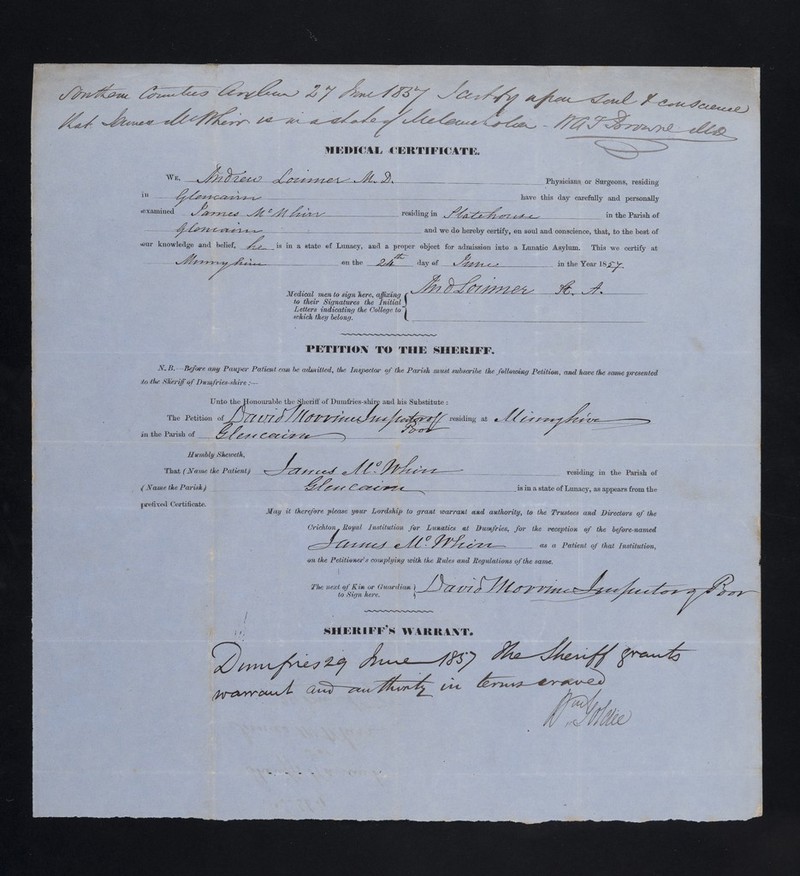 Southern Counties Asylum 27 June 1857 I certify upon Soul & conscience
that James McWhirr is in a state of Melancholia - W A F Browne MD
MEDICAL CERTIFICATE.
WE, Andrew Lorimer M. D. Physicians or Surgeons, residing
in Glencairn have this day carefully and personally
examined James McWhirr residing in Slatehouse in the Parish of
Glencairn and we do hereby certify, on soul and conscience, that, to the best of
our knowledge and belief, he is in a state of Lunacy, and a proper object for admission into a Lunatic Asylum. This we certify at
Minnyhive on the 24th day of June in the Year 1857
Medical men to sign here, affixing
to their Signatures the Initial
Letters indicating the College to
which they belong.
And Lorimer
PETITION TO THE SHERIFF.
N.B.—Before any Pauper Patient can be admitted, the Inspector of the Parish must subscribe the following Petition, and have the same presented
to the Sheriff of Dumfries-shire :—
Unto the Honourable the Sheriff of Dumfries-shire and his Substitute :
The Petition of David Morrine Inspector of Poor residing at Minnyhive
in the Parish of Glencairn
Humbly Sheweth,
That (Name the Patient) James McWhirr residing in the Parish of
(Name the Parish) Glencairn is in a state of Lunacy, as appears from the
prefixed Certificate.
May it therefore please your Lordship to grant warrant and authority, to the Trustees and Directors of the
Crichton Royal Institution for Lunatics at Dumfries, for the reception of the before-named
James McWhirr as a Patient of that Institution,
on the Petitioner's complying with the Rules and Regulations of the same.
The next of Kin or Guardian
to Sign here.
David Morrine Inspector of Poor
SHERIFF'S WARRANT.
Dumfries 29 June 1857 The Sheriff grants
warrant and authority in terms craved
Wm Goldie